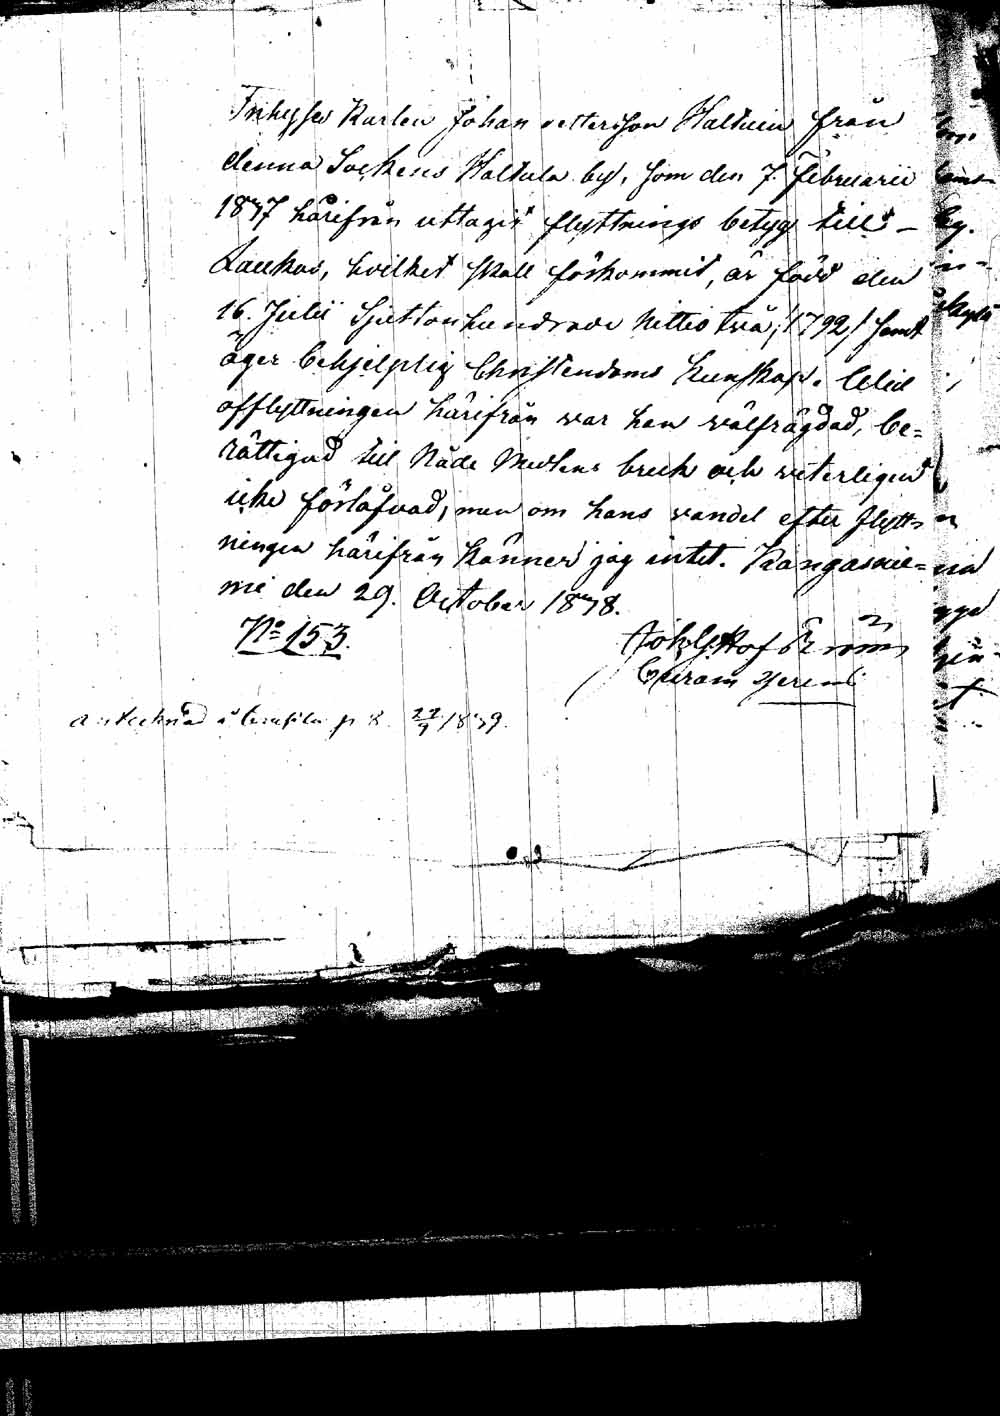 Inhyses Karlen Johan Pettersson Halttuin från
denna Sockens Halkula by, som den 7. Februarii
1837 härifrån uttagit flyttnings betyg till
Laukas, hvilket skall förkommit, är född den
16. Julii Sjuttonhundrade Nittio två, /1792/ samt
äger behjelplig Christendoms kunskap. Wid
afflyttningen härifrån war han välfrägdad, be=
rättigad till Nåde Medlens bruk och veterligen
icke förlåfvad, men om hans vandel efter flytt=
ningen härifrån känner jag intet. Kangasnie=
mi den 29. October 1838.
No 153.
Antecknad 1839.